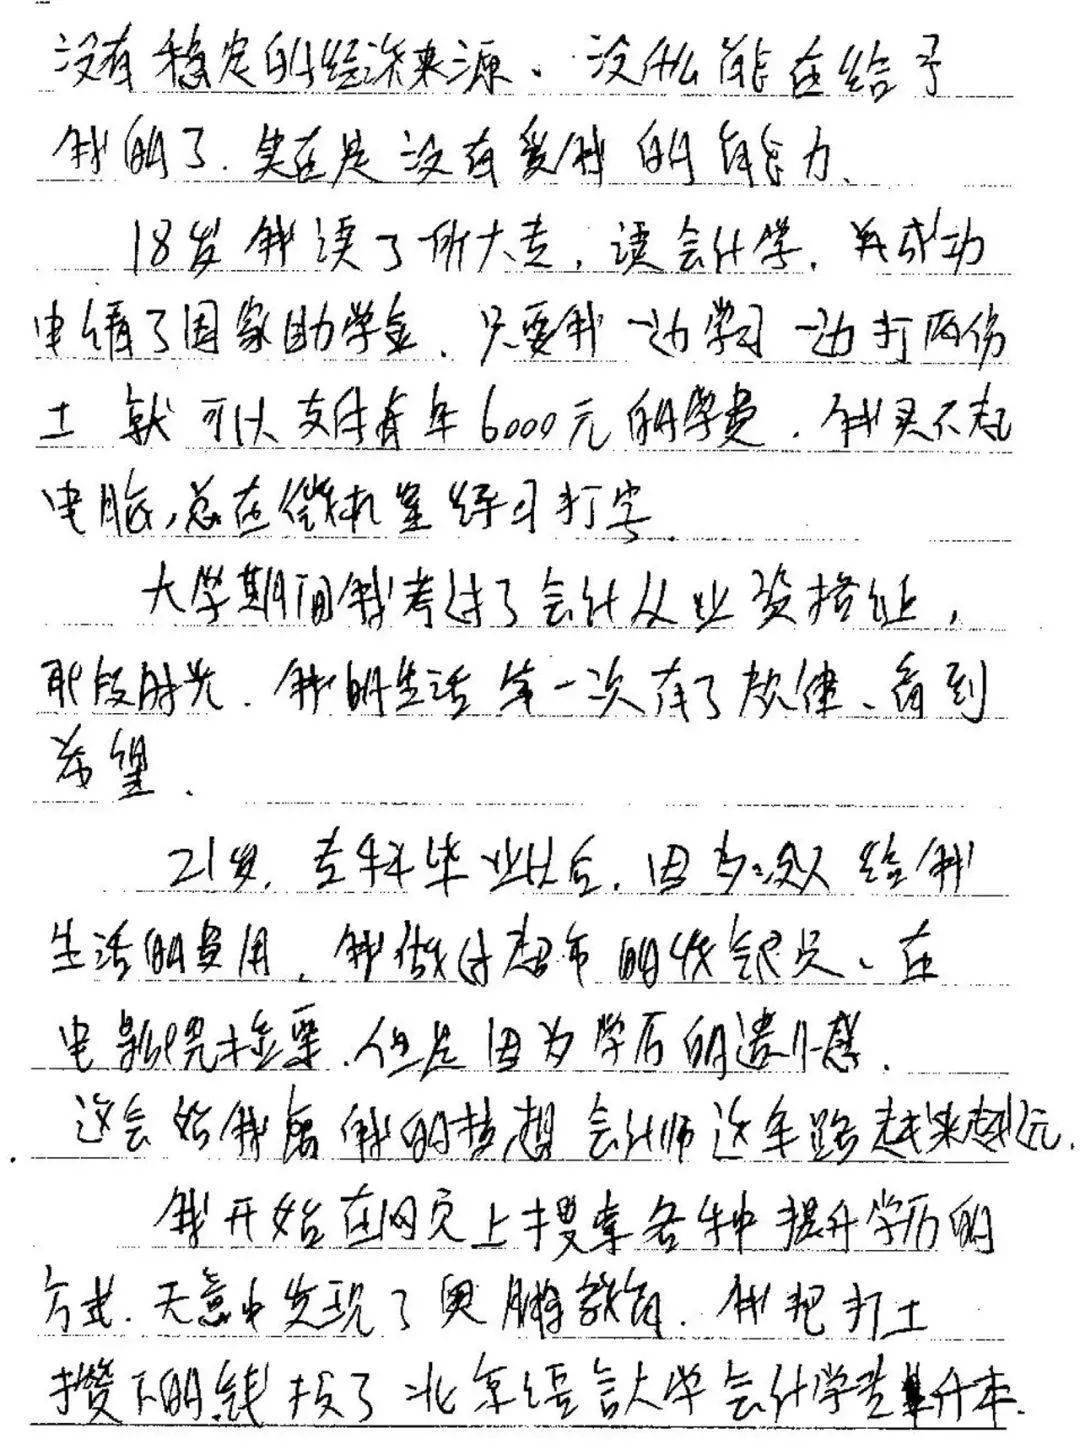 没有稳定的经济来源、没什么能在给予
我的了.实在是没有爱我的能力、
18岁我读了所大专,读会计学,并成功
申请了国家助学金、只要我一边学习一边打两份
工就可以支付每年6000元的学费.我买不起
电脑,总在微机室练习打字.
大学期间我考过了会计从业资格证,
那段时光.我的生活第一次有了规律、看到
希望.
21岁,专科毕业以后,因为没人给我
生活的费用,我做过超市的收银员、在
电影院检票.但是因为学历的遗憾.
这会始我离我的梦想会计师这条路越来越远.
我开始在网页上搜索各种提升学历的
方式.无意中发现了奥鹏教育.我把打工
攒下的钱报了北京语言大学会计学专升本.